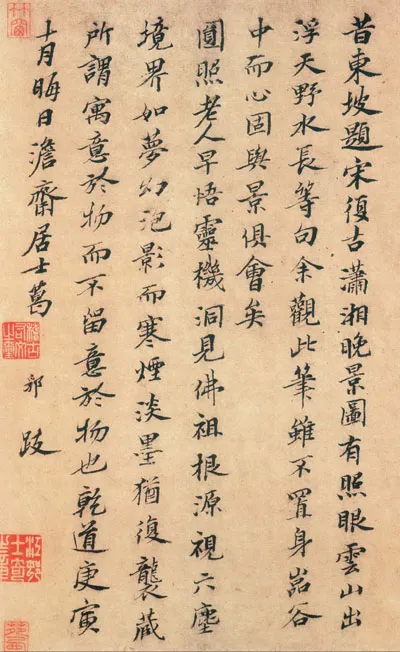 昔東坡題宋復古瀟湘晚景圖有照眼雲山出
浮天野水長等句余觀此筆雖不置身嵓谷
中而心固與景俱會矣
圓照老人早悟靈機洞見佛祖根源視六塵
境界如夢幻泡影而寒煙淡墨猶復襲藏
所謂寓意於物而不留意於物也乾道庚寅
十月晦日澹齋居士葛
郯
跋